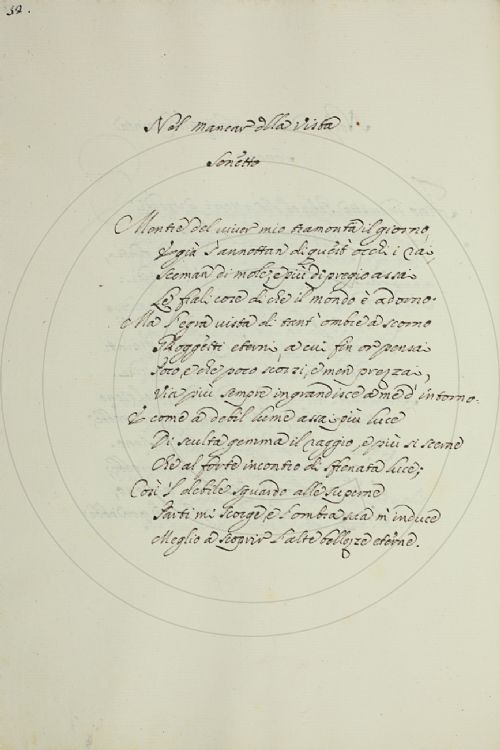 52.
Nel mancar della vista
Sonetto
Mentre del viver mio tramonta il giorno,
E già s'annottan di quest'occhi i rai,
Sceman di mole, e più di pregio assai
Le frali cose di che il mondo è adorno.
Ma l'egra vista di tant'ombre a scorno
Oggetti eterni, a cui fin or pensai
Poco, e che poco scorsi, e men prezzai,
Via più sempre ingrandisce a me d'intorno.
E come a debil lume assai più luce
Di sculta gemma il raggio, e più si scerne
Che al forte incontro di sfrenata luce;
Così 'l debile sguardo alle superne
Parti mi scorge, e l'ombra sua m'induce
Meglio a scoprir l'alte bellezze eterne.